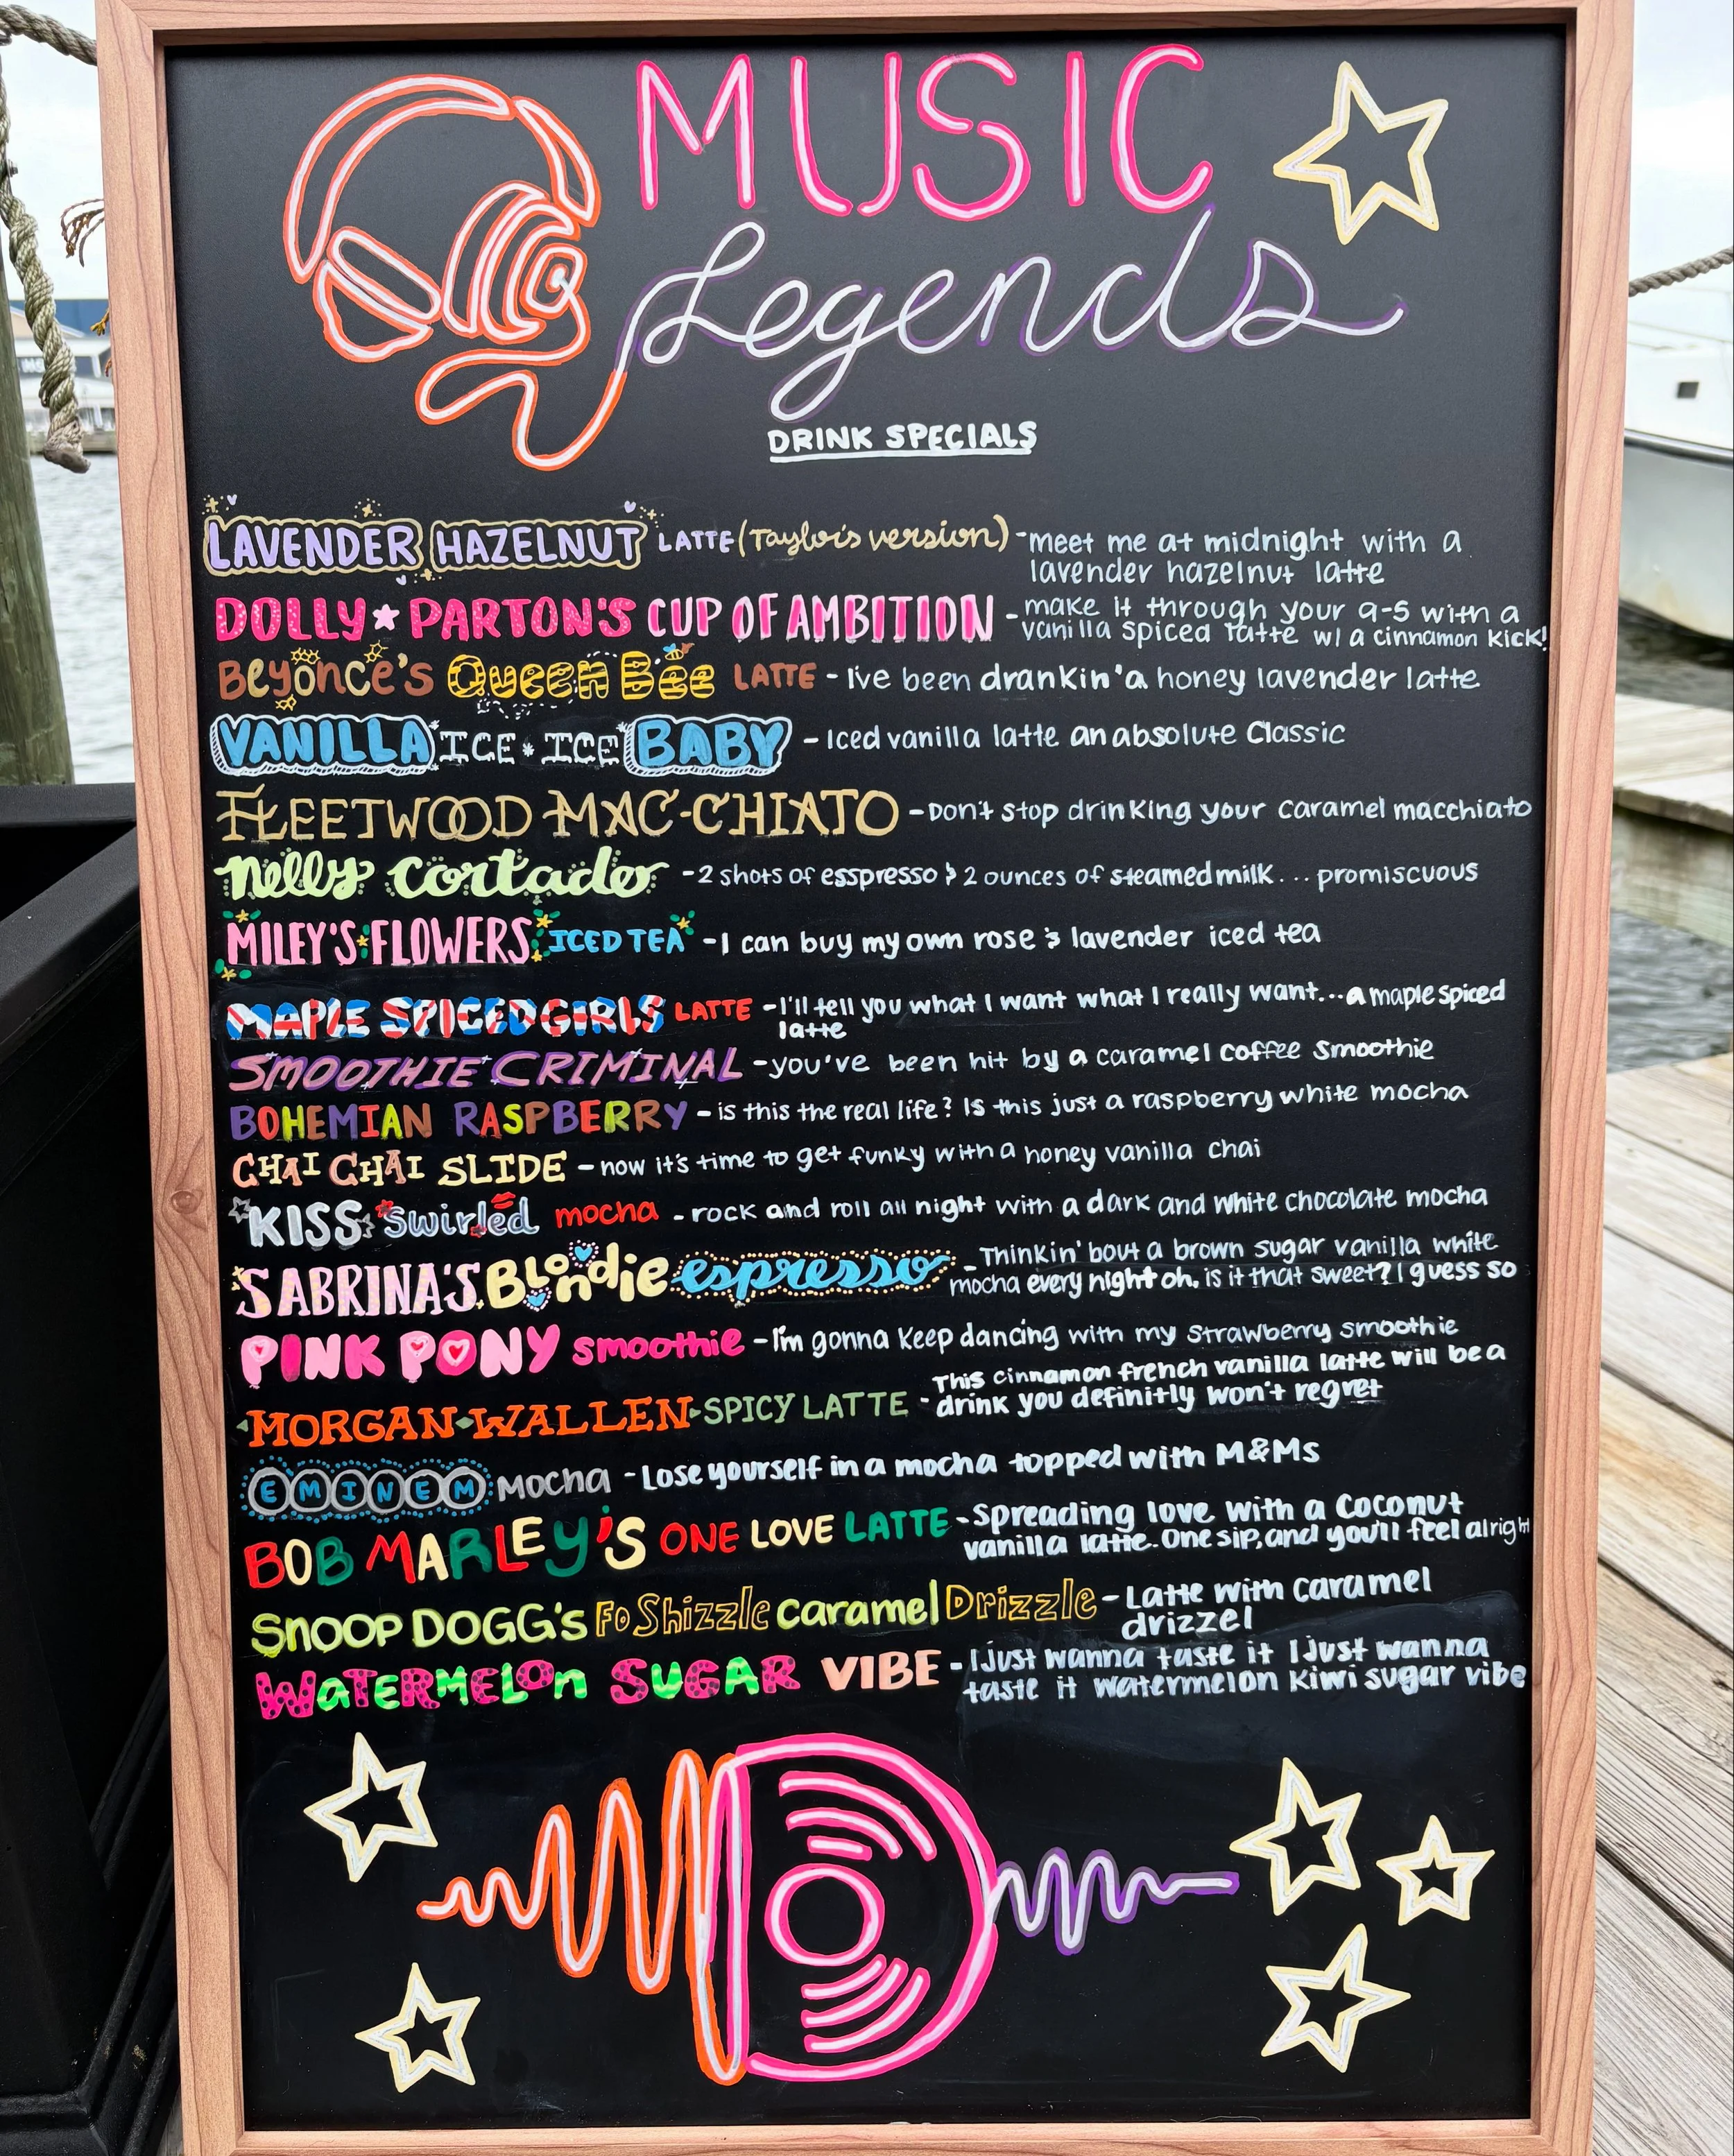 MUSIC
Legends
DRINK SPECIALS
LAVENDER HAZELNUT LATTE (Taylor's version) - meet me at midnight with a
lavender hazelnut latte
DOLLY PARTON'S CUP OF AMBITION - make it through your 9-5 with a
vanilla spiced latte w/ a cinnamon kick!
Beyonce's Queen Bee LATTE - I've been drankin' a honey lavender latte
VANILLA ICE ICE BABY - Iced vanilla latte an absolute Classic
FLEETWOOD MAC-CHIATO - Don't stop drinking your caramel macchiato
nelly cortado - 2 shots of esspresso & 2 ounces of steamed milk... promiscuous
MILEY'S FLOWERS ICED TEA - I can buy my own rose & lavender iced tea
MAPLE SPICED GIRLS LATTE - I'll tell you what I want what I really want... a maple spiced
latte
SMOOTHIE CRIMINAL - you've been hit by a caramel coffee smoothie
BOHEMIAN RASPBERRY - is this the real life? Is this just a raspberry white mocha
CHAI CHAI SLIDE - now it's time to get funky with a honey vanilla chai
KISS swirled mocha - rock and roll all night with a dark and white chocolate mocha
SABRINA'S Blondie espresso - Thinkin' bout a brown sugar vanilla white
mocha every night oh, is it that sweet? I guess so
PINK PONY smoothie - I'm gonna keep dancing with my strawberry smoothie
MORGAN WALLEN SPICY LATTE - This cinnamon french vanilla latte will be a
drink you definitly won't regret
EMINEM Mocha - Lose yourself in a mocha topped with M&Ms
BOB MARLEY'S ONE LOVE LATTE - Spreading love with a coconut
vanilla latte. One sip, and you'll feel alright
SNOOP DOGG's Fo Shizzle caramel Drizzle - Latte with caramel
drizzel
WATERMELON SUGAR VIBE - I just wanna taste it I just wanna
taste it watermelon kiwi sugar vibe